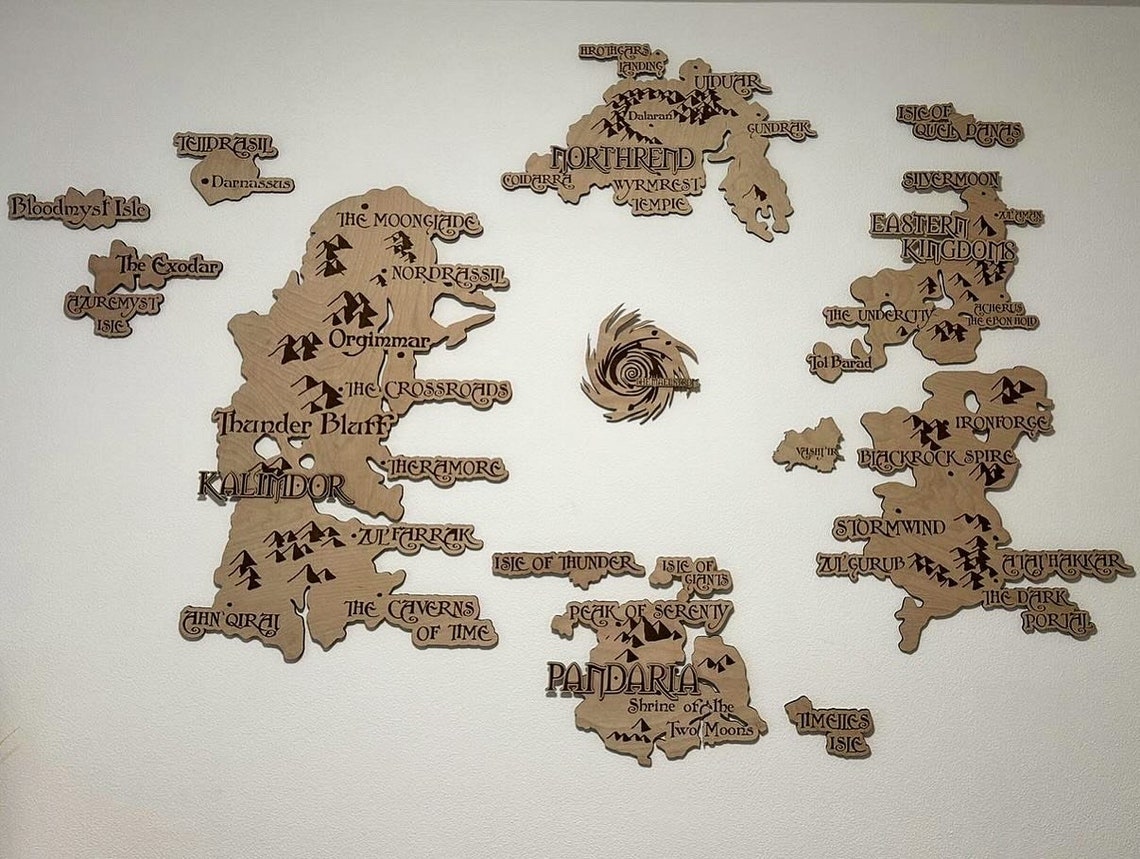 HROTHGARS
LANDING
ULDUAR
Dalaran
GUNDRAK
NORTHREND
COLDARRA
WYRMREST
TEMPLE
TELDRASIL
Darnassus
Bloodmyst Isle
The Exodar
AZUREMYST
ISLE
THE MOONGLADE
NORDRASSIL
Orgimmar
THE CROSSROADS
Thunder Bluff
THERAMORE
KALIMDOR
ZUL'FARRAK
AHN'QIRAJ
THE CAVERNS
OF TIME
THE MAELSTROM
ISLE OF
QUEL DANAS
SILVERMOON
ZUL'AMAN
EASTERN
KINGDOMS
THE UNDERCITY
ACHERUS
THE EBON HOLD
Tol Barad
IRONFORGE
VASHJ'IR
BLACKROCK SPIRE
STORMWIND
ZUL'GURUB
ATAL'HAKKAR
THE DARK
PORTAL
ISLE OF THUNDER
ISLE OF
GIANTS
PEAK OF SERENITY
PANDARIA
Shrine of the
Two Moons
TIMELLES
ISLE